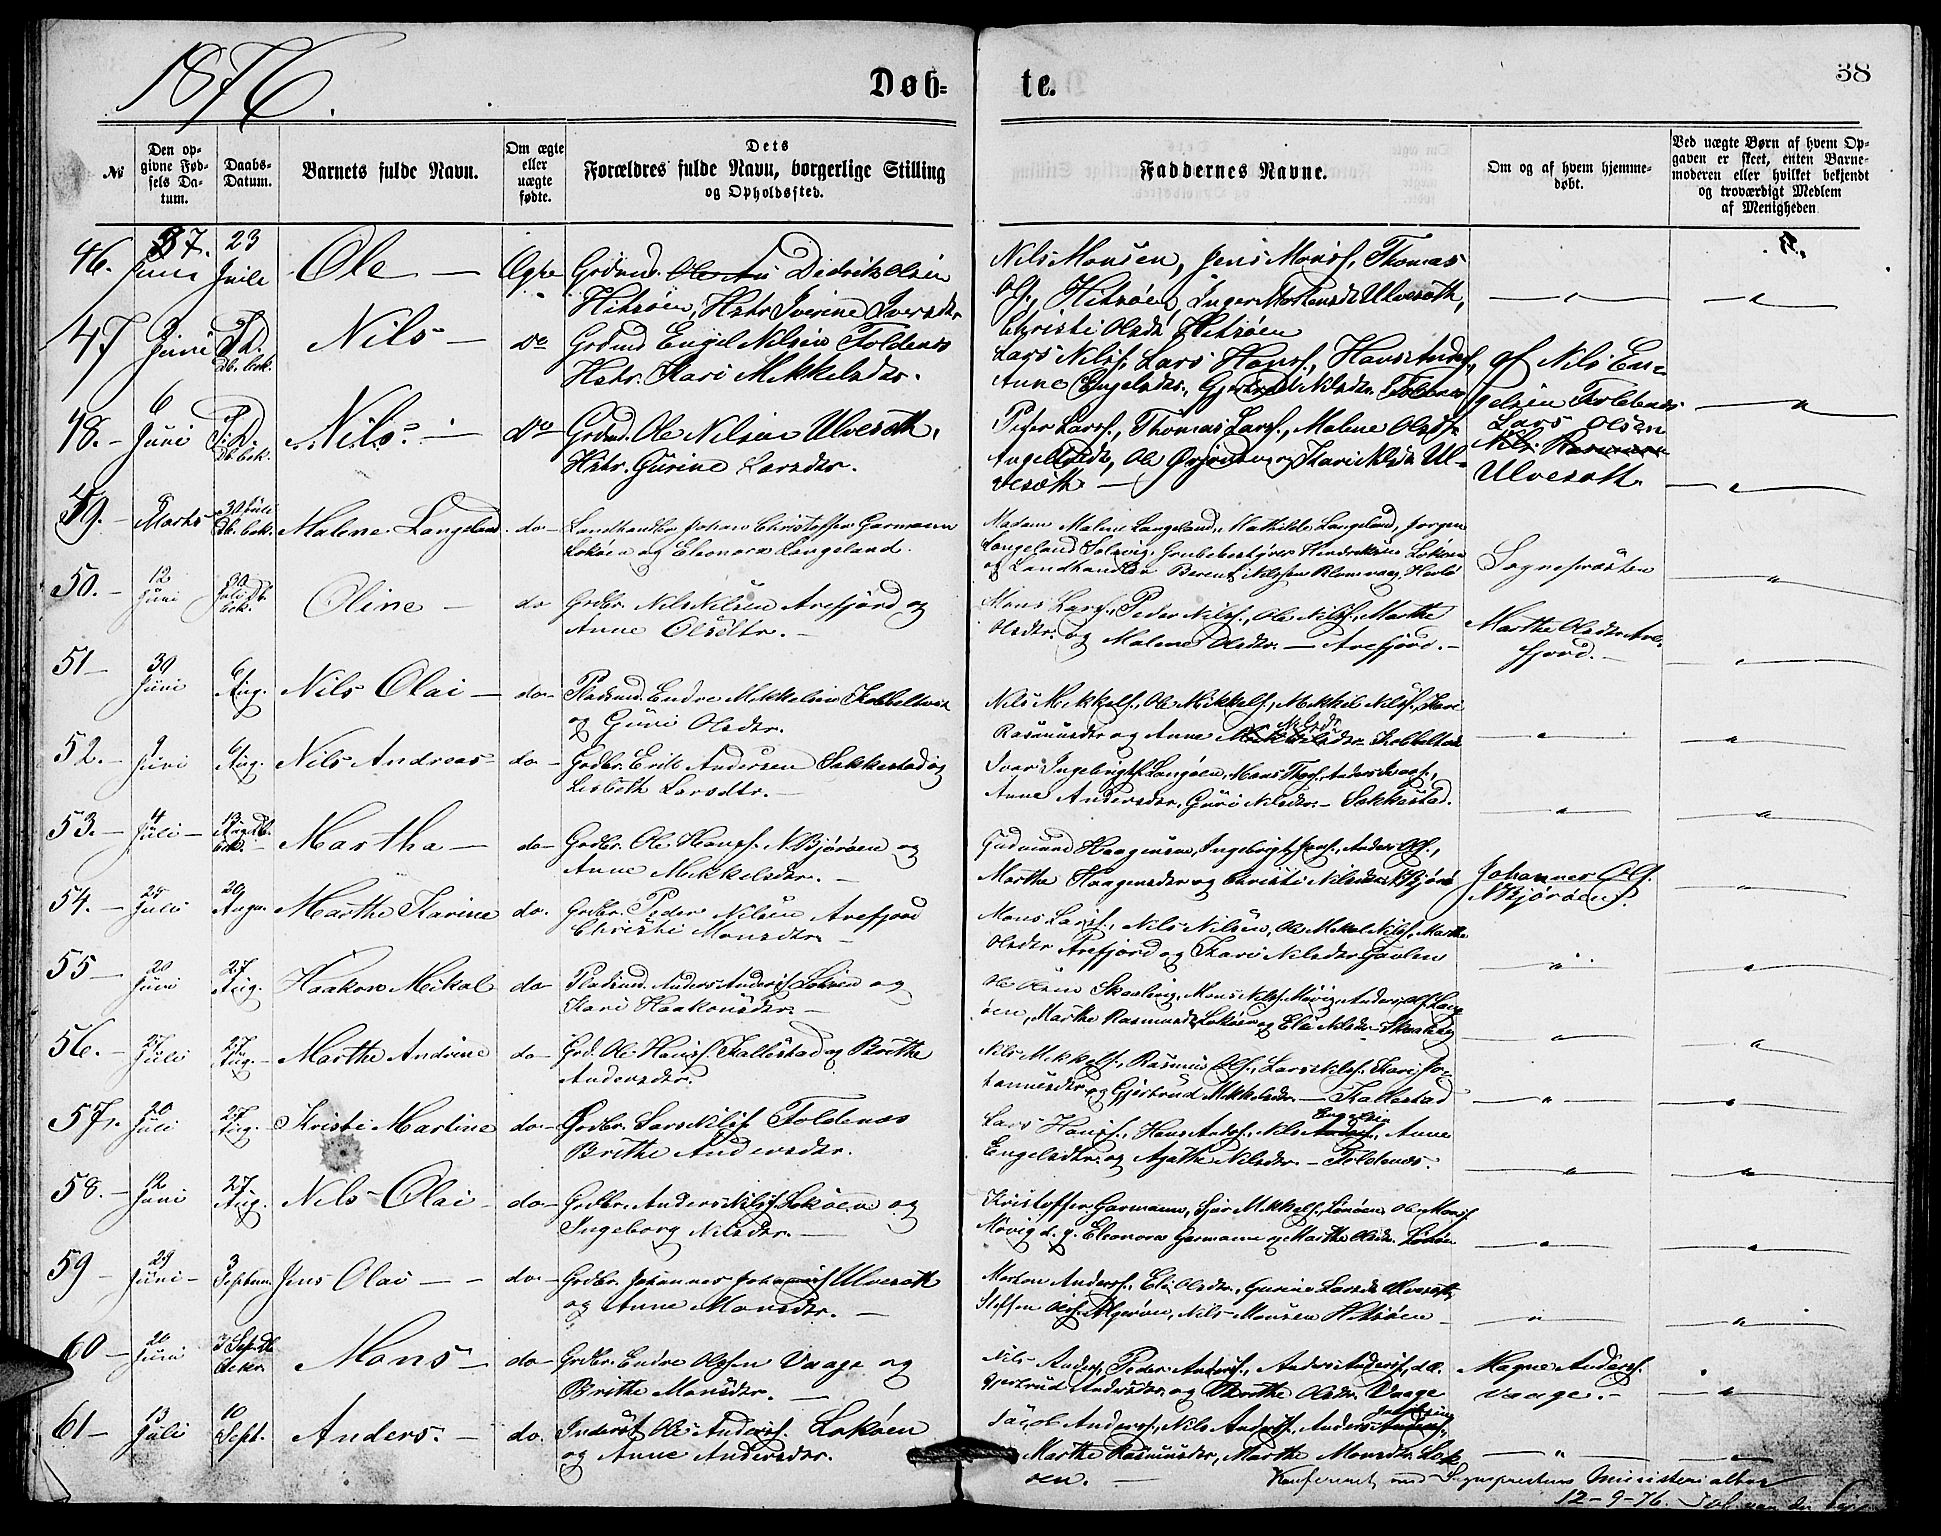 1876.
Døb=
te.
38
№
Den op-
givne Fød-
sels Da-
tum.
Daabs-
Datum.
Barnets fulde Navn.
Om ægte
eller
uægte
fødte.
Dets
Forældres fulde Navn, borgerlige Stilling
og Opholdssted.
Faddernes Navne.
Om og af hvem hjemme-
døbt.
Ved uægte Børn af hvem Op-
gaven er skeet, enten Barne-
moderen eller hvilket bekjendt
og troværdigt Medlem
af Menigheden
46. Juni 23 Juile Ole — Ægte Grdmd. Didrik Olsen
Hitsøen, Hstr Iverine Iversdtr
Nils Monsen, Jens Monsf. Thomas
Ols. Hitsøen, Inger Ulvesøth,
Christi Olsdr Hitsøen
47 Juni Db. bek. Nils — do Grdmd Engel Nilsen Toldenes
Hstr. Kari Mikkelsdtr.
Lars Nilsf., Lars Hansf., Hans Andsf.,
Anne Engelsdtr., Gjertrud Nilsdtr. Toldenes
af Nils En-
gelsen Toldenes
48. – 6 Juni Db. bek. Nils. — do Grdmd. Ole Nilsen Ulvesøth,
Hstr. Gurine Larsdtr.
Peder Larsf., Thomas Larsf., Malene Olsdr.
og Kari Nilsdr Ul-
vesøth —
Lars Olsen
Ulvesøth
49. – 8 Marts 30 Juli Db. bek. Malene Langeland do Landhandler Johan Christoffer Garmann
Lokøen og Eleonora Langeland.
Madam Malene Langeland, Mathilde Langeland, Jørgen
Langeland Solsvig, Grubebestyrer Hendriksen Lokøen
og Landhandler Berent Nilssen Blomvaag, Herlø
Sognepræsten
50. – 12 Juni 30 Juli Db. bek. Oline – do Grdbr. Nils Nilsen Arefjord og
Anne Olsdtr. –
Mons Larsf., Peder Nilsf., Ole Nilsf., Marthe
Olsdtr. og Malene Olsdtr. — Arefjord. –
Marthe Olsdtr Are-
fjord. –
51 – 30 Juni 6 Aug. Nils Olai – do– Pladsmd. Endre Mikkelsen Kobbeltvet
og Guri Olsdtr.
Nils Mikkelsf., Ole Mikkelsf., Mikkel Nilsf., Kari
Rasmusdtr og Anne Nilsdr Kobbeltvet
52. – 9 Juni 6 Aug. Nils Andreas – do – Grdbr. Erik Andersen Sekkestad og
Lisbeth Larsdtr. –
Ivar Ingebrigtsf. Langøen, Mons Thsf., Anders Ivarsf.,
Anne Andersdtr, Guro Nilsdtr. – Sekkestad.
53. – 4 Juli – 13 Aug. Db. bek. Martha – do – Grdbr. Ole Hansf. N. Bjørøen og
Anne Mikkelsdtr. –
Gudmund Haagensen, Ingebrigt Jensf., Anders Olsf.,
Marthe Haagensdtr og Christi Nilsdtr N. Bjørø
Johannes Ols.
N. Bjørøen.
54. – 25 Juli 20 Augu. Marthe Karine do. Grdbr. Peder Nilsen Arefjord
Christi Monsdtr. –
Mons Larsf., Nils Nilsen, Ole Mikal Nilsf., Marthe
Olsdtr Arefjord og Kari Nilsdtr Gavlen
55 – 20 Juni 27 Aug. Haakon Mikal do Pladsmd. Anders Andersf. Lokøen og
Kari Haakonsdtr. –
Ole Olsen Skaalvig, Mons Nilsf. Møvig, Anders Olsf. Lang-
øen, Marthe Rasmusdr Lokøen og Eli Nilsdtr – Skaalvig
56. – 27 Juli 27 Aug. – Marthe Andrine do – Grd. Ole Hansf. Fallestad og Brithe
Andersdtr.
Nils Mikkelsf., Rasmus Olsf., Lars Nilsf., Kari Jo-
hannesdtr, og Gjertrud Mikkelsdtr. – Fallestad
57. – 20 Juli 27 Aug. – Kristi Martine do. – Grdbr. Lars Nilsf. Toldenes
Brithe Andersdtr.
Lars Hansf., Hans Andsf., Nils Engelsen, Anne
Engelsdtr. og Agathe Nilsdtr. – Toldenes.
58. – 12 Juni 27 Aug. Nils Olai – do – Grdbr. Anders Nilsf. Lokøen og
Ingeborg Nilsdtr. –
Kristoffer Garmann, Sjur Mikkelsf. Lokøen, Ole Monsf.
Møvig d. y. Eleonora Garmann og Marthe Olsdr. Lokøen
59 – 29 Juni – 3 Septem. Jens Olai – – do. – Grdbr. Johannes Ulvesøth
og Anne Monsdtr. –
Morten Andersf., Eli Olsdtr., Gurine Larsdr Ulvesøth,
Steffen Olsf. Algrøen, Nils Monsen Hitsøen –
60 – 20 Juni 3 Sept. Db. bek. Mons – do – Grdbr. Endre Olssen Vaage og
Brithe Monsdtr. –
Nils Andersf., Peder Andersf., Anders Andersf.,
Gjertrud Andersdtr og Brithe Olsdr. Vaage
Magne Andersf.
Vaage. –
61 – 13 Juli 10 Sept. Anders. – do. Inderst Ole Andersf. Lokøen
og Anne Andersdtr.
Jacob Andersf., Nils Andersf., Anders
Marthe Rasmusdtr, Marthe Monsdtr. Lok-
øen. –
Konfereret med Sognepræstens Ministerialbog
12–9–76.